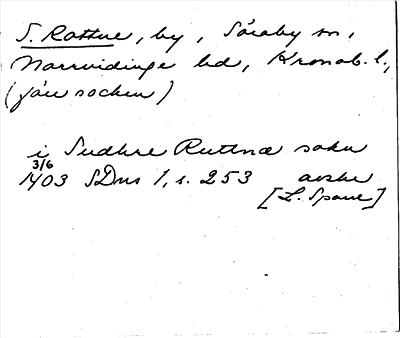 S. Rottne, by, Söraby sn,
Norrvidinge hd, Kronob. l.,
(jäu socken)
i Sudhre Rutnæ sokn
3/6
1403 SDns 1, s. 253 avskr
[L. Spane]